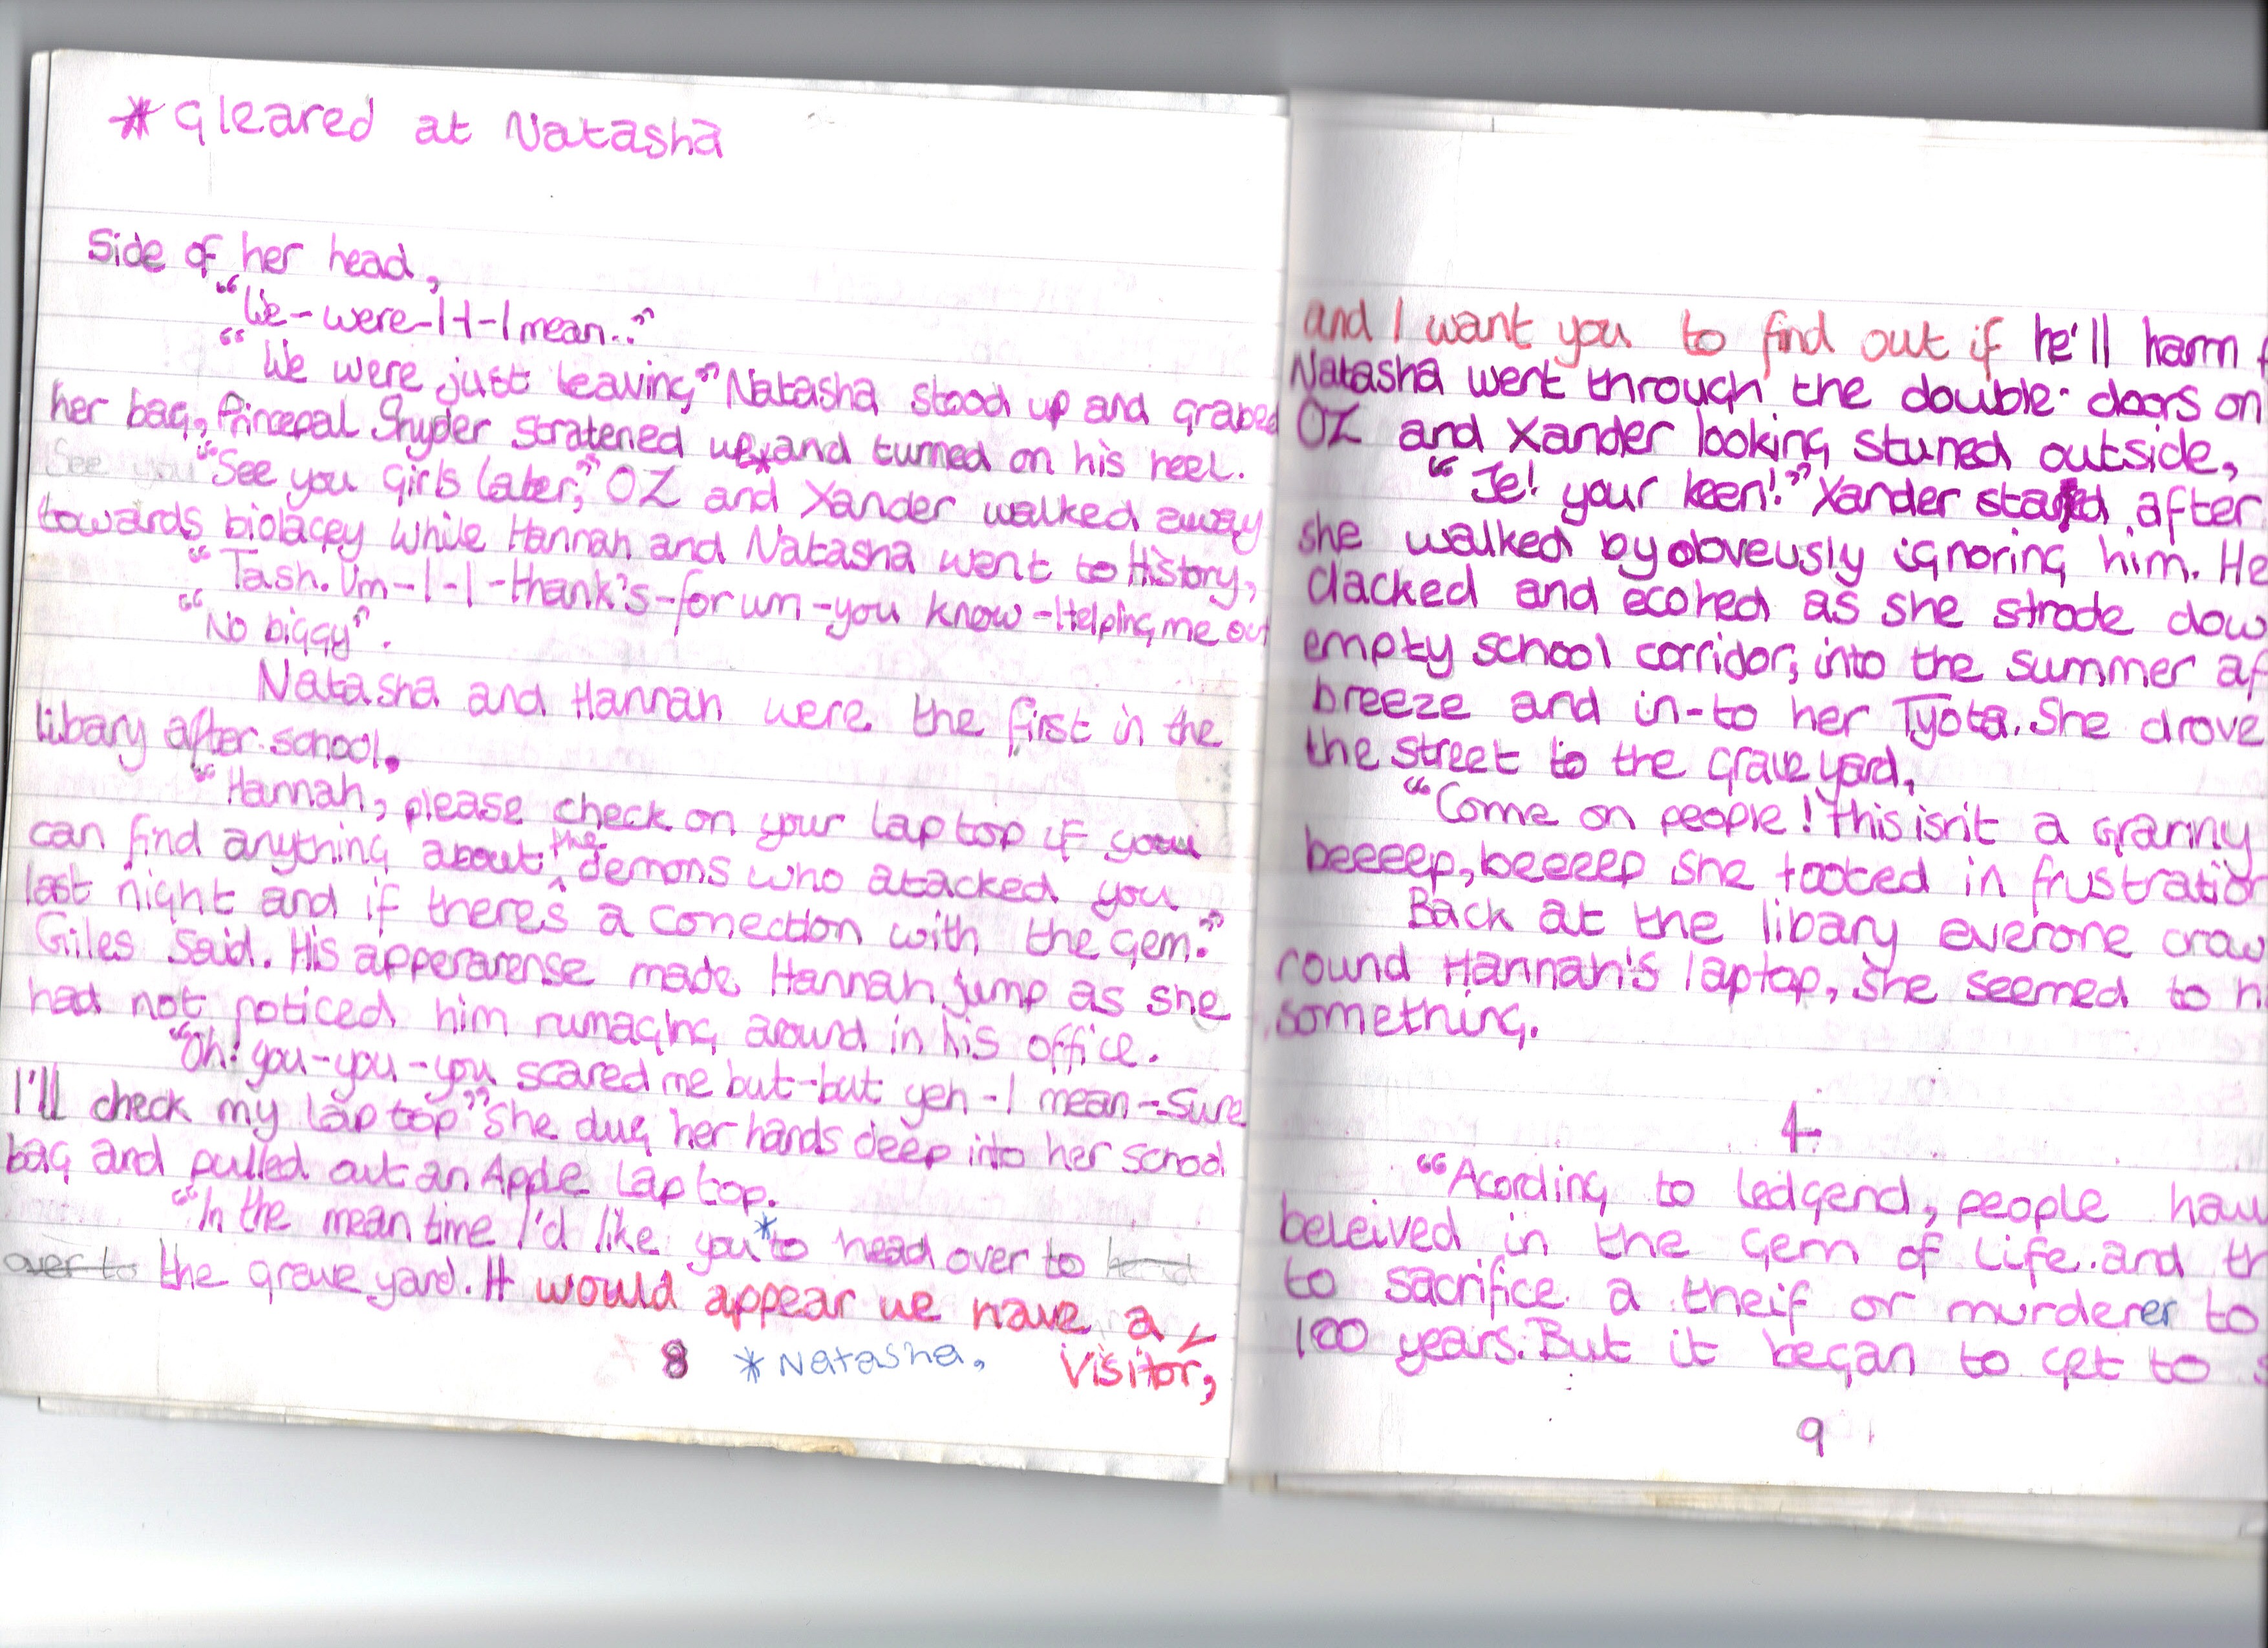 * Gleared at Natasha
Side of her head,
"We-were-I-I-I mean.."
"We were just leaving," Natasha stood up and grabed
her bag, Princepal Snyder stratened up,* and turned on his heel.
See you "See you Girls later," OZ and Xander walked away
towards biolagey while Hannah and Natasha went to History,
"Tash. Um-I-I-thank's-for um-you know-Helping me out
"No biggy".
Natasha and Hannah were the first in the
libary after school.
"Hannah, please check on your laptop if you
can find anything about the demons who atacked you
last night and if there's a conection with the gem."
Giles said. His apperarense made Hannah jump as she
had not noticed him rumaging around in his office.
"Oh! you-you-you scared me but-but yeh-I mean-Sure
I'll check my laptop" She dug her hands deep into her school
bag and pulled out an Apple Laptop.
"In the mean time I'd like you* to head over to head
over to the grave yard. It would appear we have a
Visitor,
8 * Natasha.
and I want you to find out if he'll harm
Natasha went through the double-doors on
OZ and Xander looking stuned outside,
"Je! your keen!" Xander stared after
she walked by obveusly ignoring him. He
clacked and ecohed as she strode dow
empty school corridor, into the summer af
breeze and in-to her Tyota. She drove
the street to the grave yard,
"Come on people! this isn't a Granny
beeeep, beeeep she tooted in frustration
Back at the libary everone crow
round Hannah's laptop, She seemed to h
something.
4
"Acording to ledgend, people hav
beleived in the Gem of Life. and th
to sacrifice a theif or murderer to
100 years. But it began to get to s
9